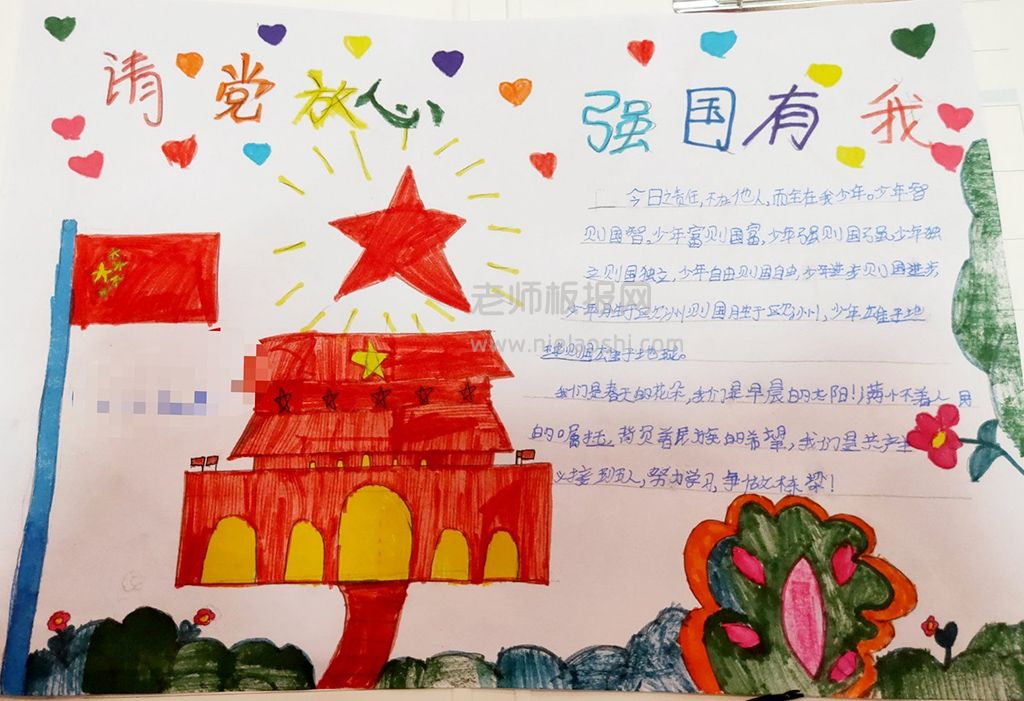 请党放心
强国有我
今日之责任,不在他人,而全在我少年。少年智
则国智。少年富则国富,少年强则国强,少年独
立则国独立,少年自由则国自由,少年进步则国进步,
少年胜于欧洲则国胜于欧洲,少年雄于地
球则国雄于地球。
老师板报网
www.njlaoshi.com
我们是春天的花朵,我们是早晨的太阳!满怀着人民
的嘱托,背负着民族的希望,我们是共产主
义接班人,努力学习争做栋梁!